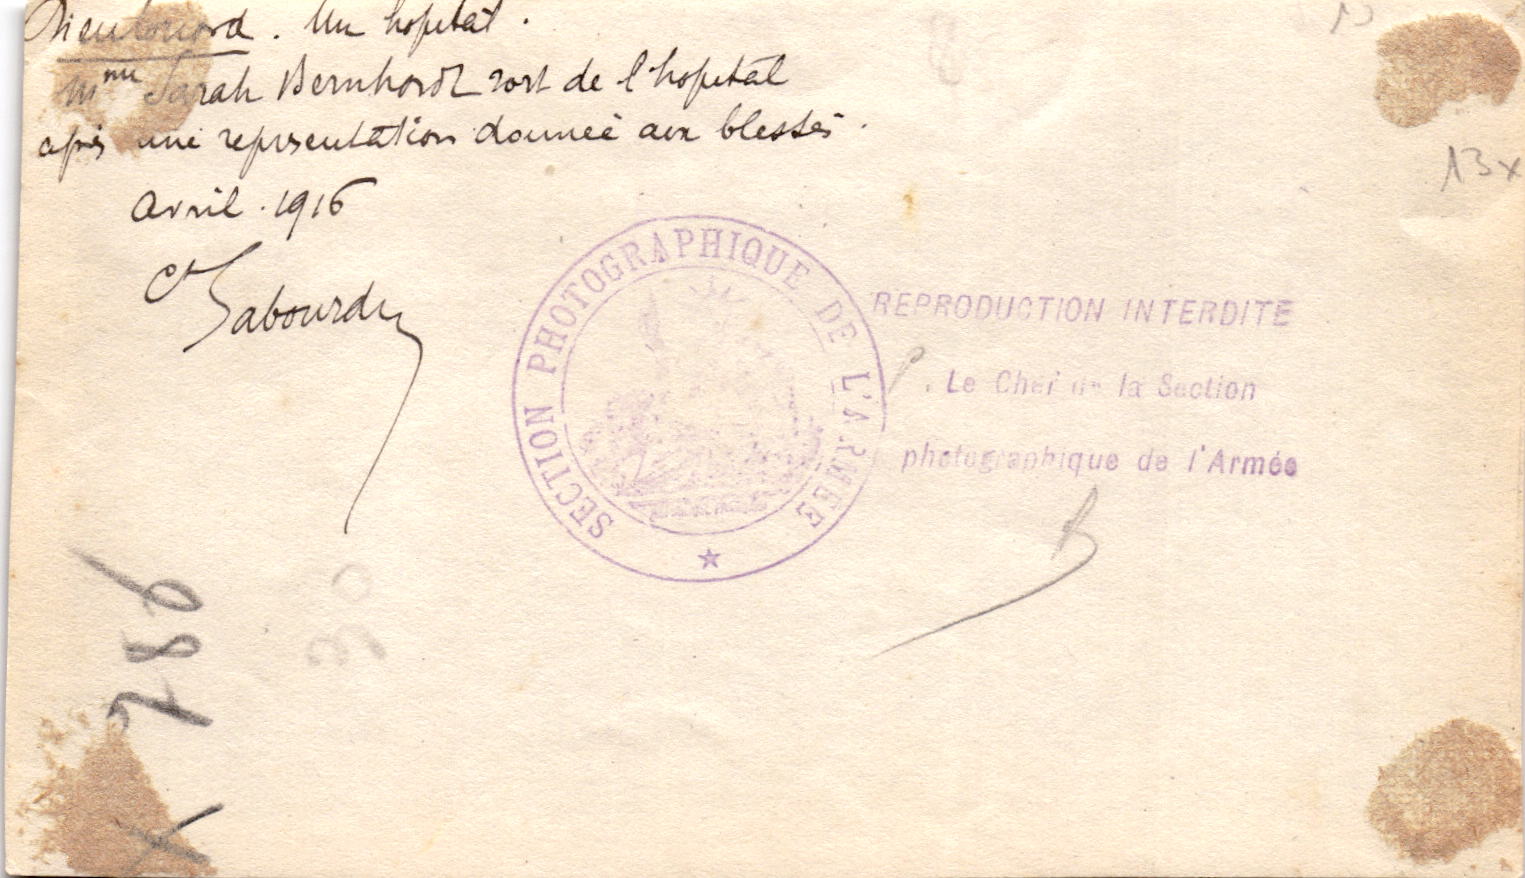 Dieulouard. Un hopital.
Mme Sarah Bernhardt sort de l'hopital
après une représentation donnée aux blessés.
Avril. 1916
Ct Sabourdy
SECTION PHOTOGRAPHIQUE DE L'ARMÉE
REPRODUCTION INTERDITE
P. Le Chef de la Section
photographique de l'Armée
13x
30
786
X